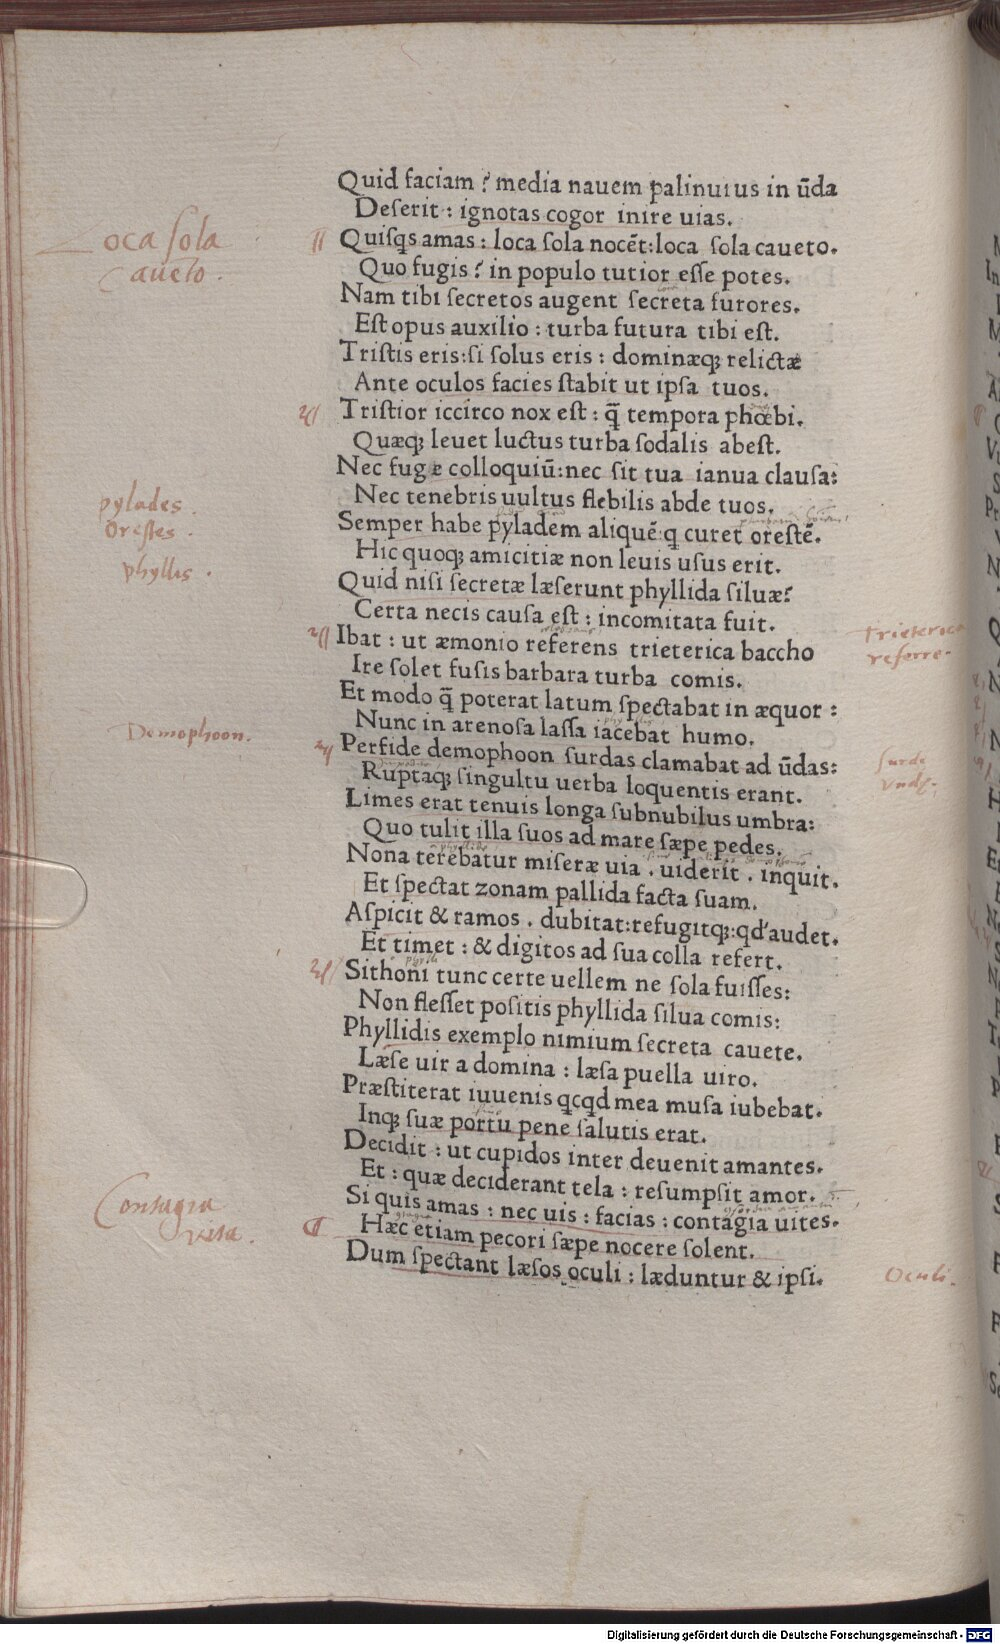 Quid faciam? media nauem palinurus in ūda
Deserit: ignotas cogor inire uias.
Quisqs amas: loca sola nocēt: loca sola caueto.
Quo fugis? in populo tutior esse potes.
Nam tibi secretos augent secreta furores.
Est opus auxilio: turba futura tibi est.
Tristis eris: si solus eris: dominæq; relictæ
Ante oculos facies stabit ut ipsa tuos.
Tristior iccirco nox est: q̄ tempora phœbi.
Quæq; leuet luctus turba sodalis abest.
Nec fuge colloquiū: nec sit tua ianua clausa:
Nec tenebris uultus flebilis abde tuos.
Semper habe pyladem aliquē: q curet orestē.
Hic quoq; amicitiæ non leuis usus erit.
Quid nisi secretæ læserunt phyllida siluæ?
Certa necis causa est: incomitata fuit.
Ibat: ut æmonio referens trieterica baccho
Ire solet fusis barbara turba comis.
Et modo q̄ poterat latum spectabat in æquor:
Nunc in arenosa lassa iacebat humo.
Perfide demophoon surdas clamabat ad ūdas:
Ruptaq; singultu uerba loquentis erant.
Limes erat tenuis longa subnubilus umbra:
Quo tulit illa suos ad mare sæpe pedes.
Nona terebatur miseræ uia. uiderit. inquit.
Et spectat zonam pallida facta suam.
Aspicit & ramos. dubitat: refugitq;: qd' audet.
Et timet: & digitos ad sua colla refert.
Sithoni tunc certe uellem ne sola fuisses:
Non flesset positis phyllida silua comis:
Phyllidis exemplo nimium secreta cauete.
Læse uir a domina: læsa puella uiro.
Præstiterat iuuenis qcqd mea musa iubebat.
Inq; suæ portu pene salutis erat.
Decidit: ut cupidos inter deuenit amantes.
Et: quæ deciderant tela: resumpsit amor.
Si quis amas: nec uis: facias: contagia uites.
Hæc etiam pecori sæpe nocere solent.
Dum spectant læsos oculi: læduntur & ipsi.
Loca sola
caueto.
pylades.
Orestes.
phyllis.
Demophoon.
Contagia
vita.
Trieterica
referre.
surde
vnde.
Oculi.
Digitalisierung gefördert durch die Deutsche Forschungsgemeinschaft - DFG